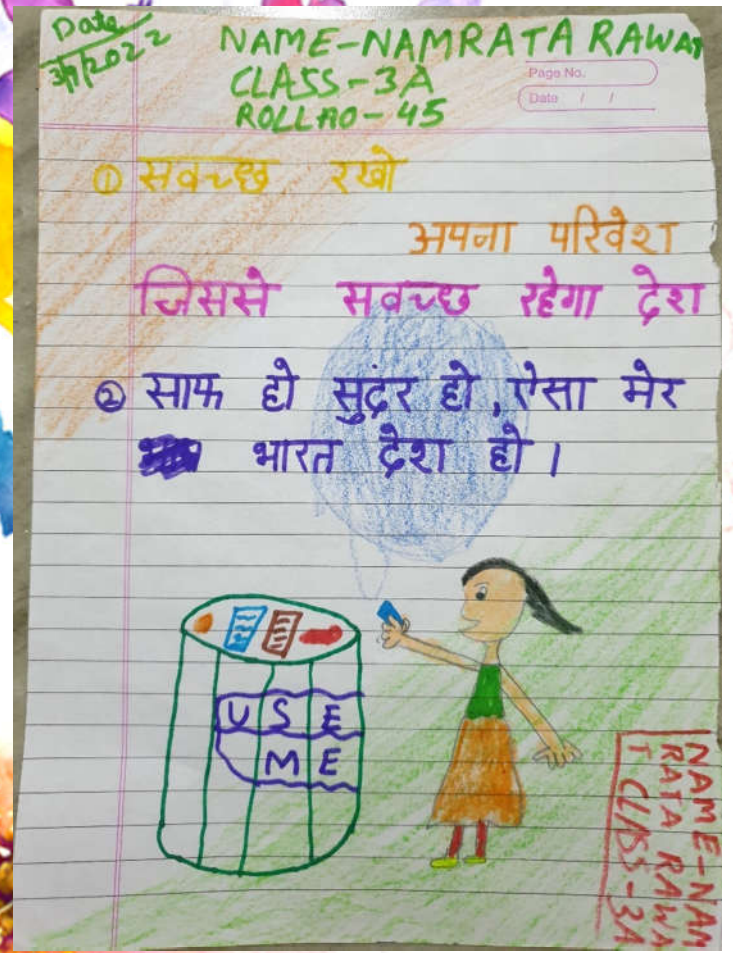 Date
3/7/2022
NAME-NAMRATA RAWAT
CLASS-3A
ROLL NO-45
Page No.
Date / /
① सवच्छ रखो
अपना परिवेश
जिससे सवच्छ रहेगा देश
② साफ हो सुदंर हो, ऐसा मेर
भारत देश हो।
USE
ME
NAME-NAM
RATA RAWA
T CLASS-3A